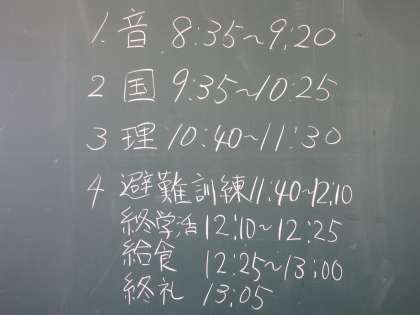 1. 音 8:35~9:20
2 国 9:35~10:25
3 理 10:40~11:30
4 避難訓練 11:40~12:10
終学活 12:10~12:25
給食 12:25~13:00
終礼 13:05